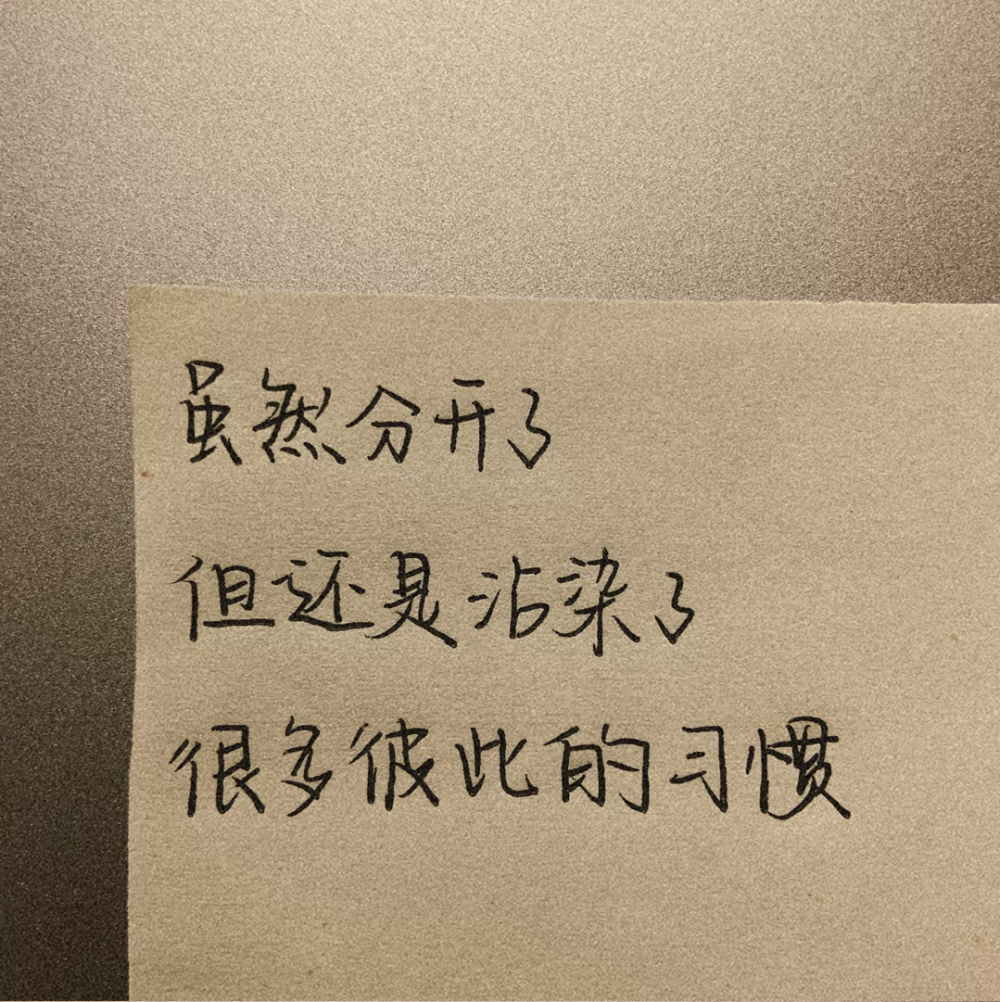 虽然分开了
但还是沾染了
很多彼此的习惯